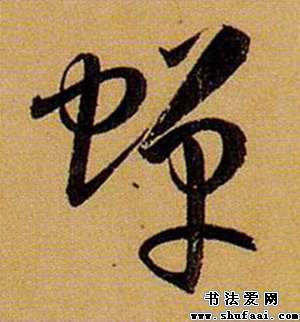 蝉
书法爱网
www.shufaai.com